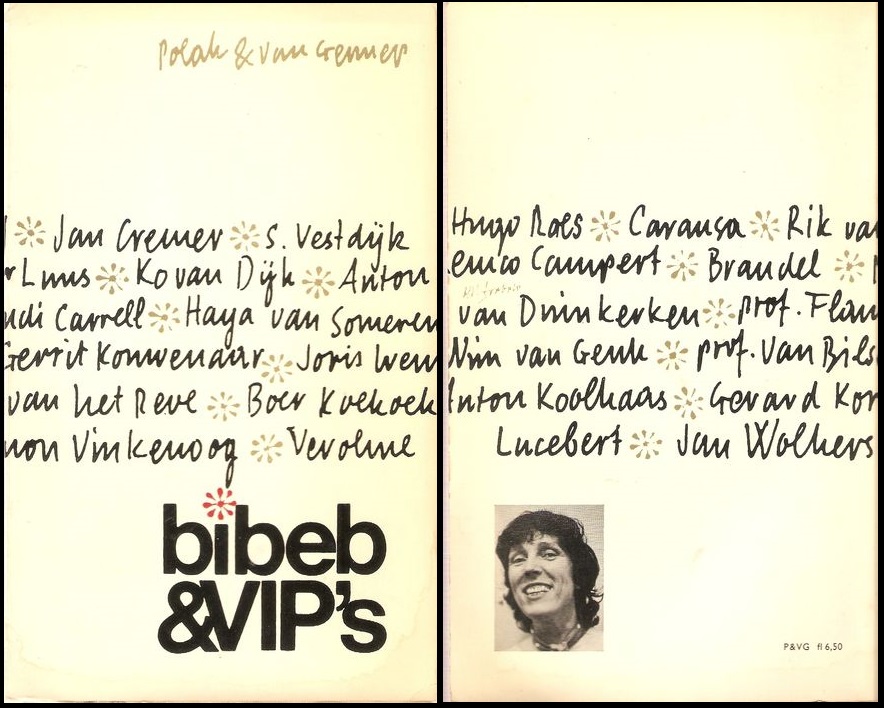 Polak & van Gennep
Jan Cremer s. Vestdijk
r Luns Ko van Dijk Anton
udi Carrell Haya van Someren
Gerrit Kouwenaar Joris Iven
van het Reve Boer Koekoek
mon Vinkenoog Verolme
bibeb
&VIP's
Hugo Raes Caransa Rik van
emco Campert Brandel
van Duinkerken prof. Flam
Wim van Genk prof. Van Bils
Anton Koolhaas Gerard Kor
Lucebert Jan Wolkers
P&VG fl 6,50